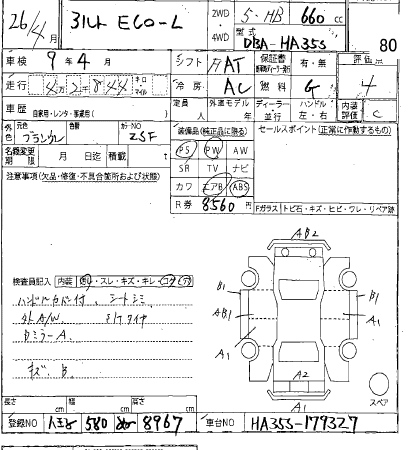 26/4月 ミルト ECO-L 2WD 4WD 5・HB 660 cc
型式 DBA-HA35S 80
車検 9年 4月 シフト FAT 保証書 有・無 評価点
走行 4万2千844 キロ マイル 冷房 AC 燃料 G 4
車歴 自家用・レンタ・事業用( ) 定員 人 外車モデル 年 ディーラー 並行 ハンドル 左・右 内装評価 C
外色 元色 ブラウン 色替 カラーNO ZSF
装備品(純正品に限る) セールスポイント(正常に作動するもの)
名義変更期限 月 日迄 積載 t
PS PW AW
SR TV ナビ
カワ エアB ABS
R券 8560円
注意事項(欠品・修復・不具合箇所および状態)
Fガラス トビ石・キズ・ヒビ・ワレ・リペア跡
AB2
検査員記入 内装 ・スレ・キズ・キレ・コゲ・穴
ハンドルカバー付、シートシミ
外A/W
ミラーA
キズ、B
B1 AB1 A1
B1 A1
A2
A1
スペア
長さ cm 幅 cm 高さ cm
登録NO 八王子 580 8967 車台NO HA35S-179327